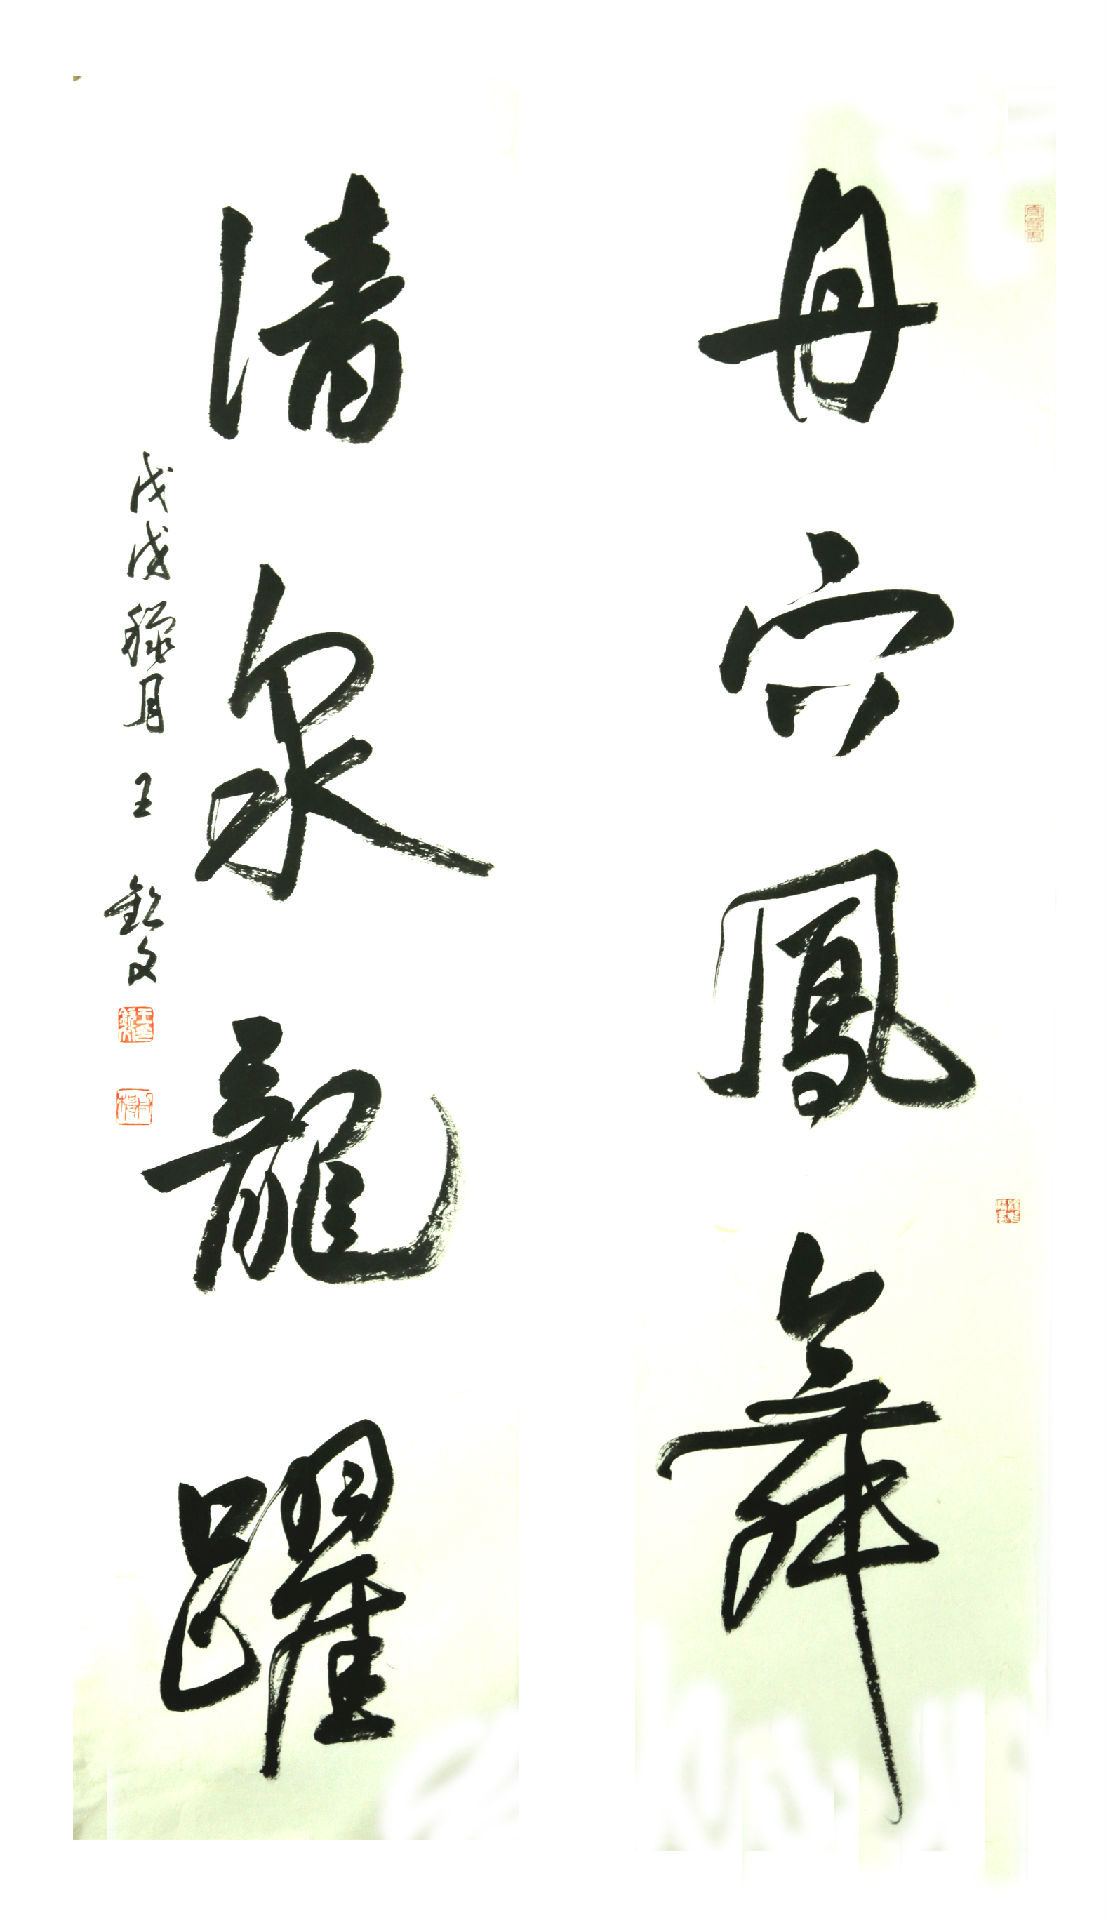 丹穴鳳舞
清泉龍躍
戊戌穐月 王 欽文